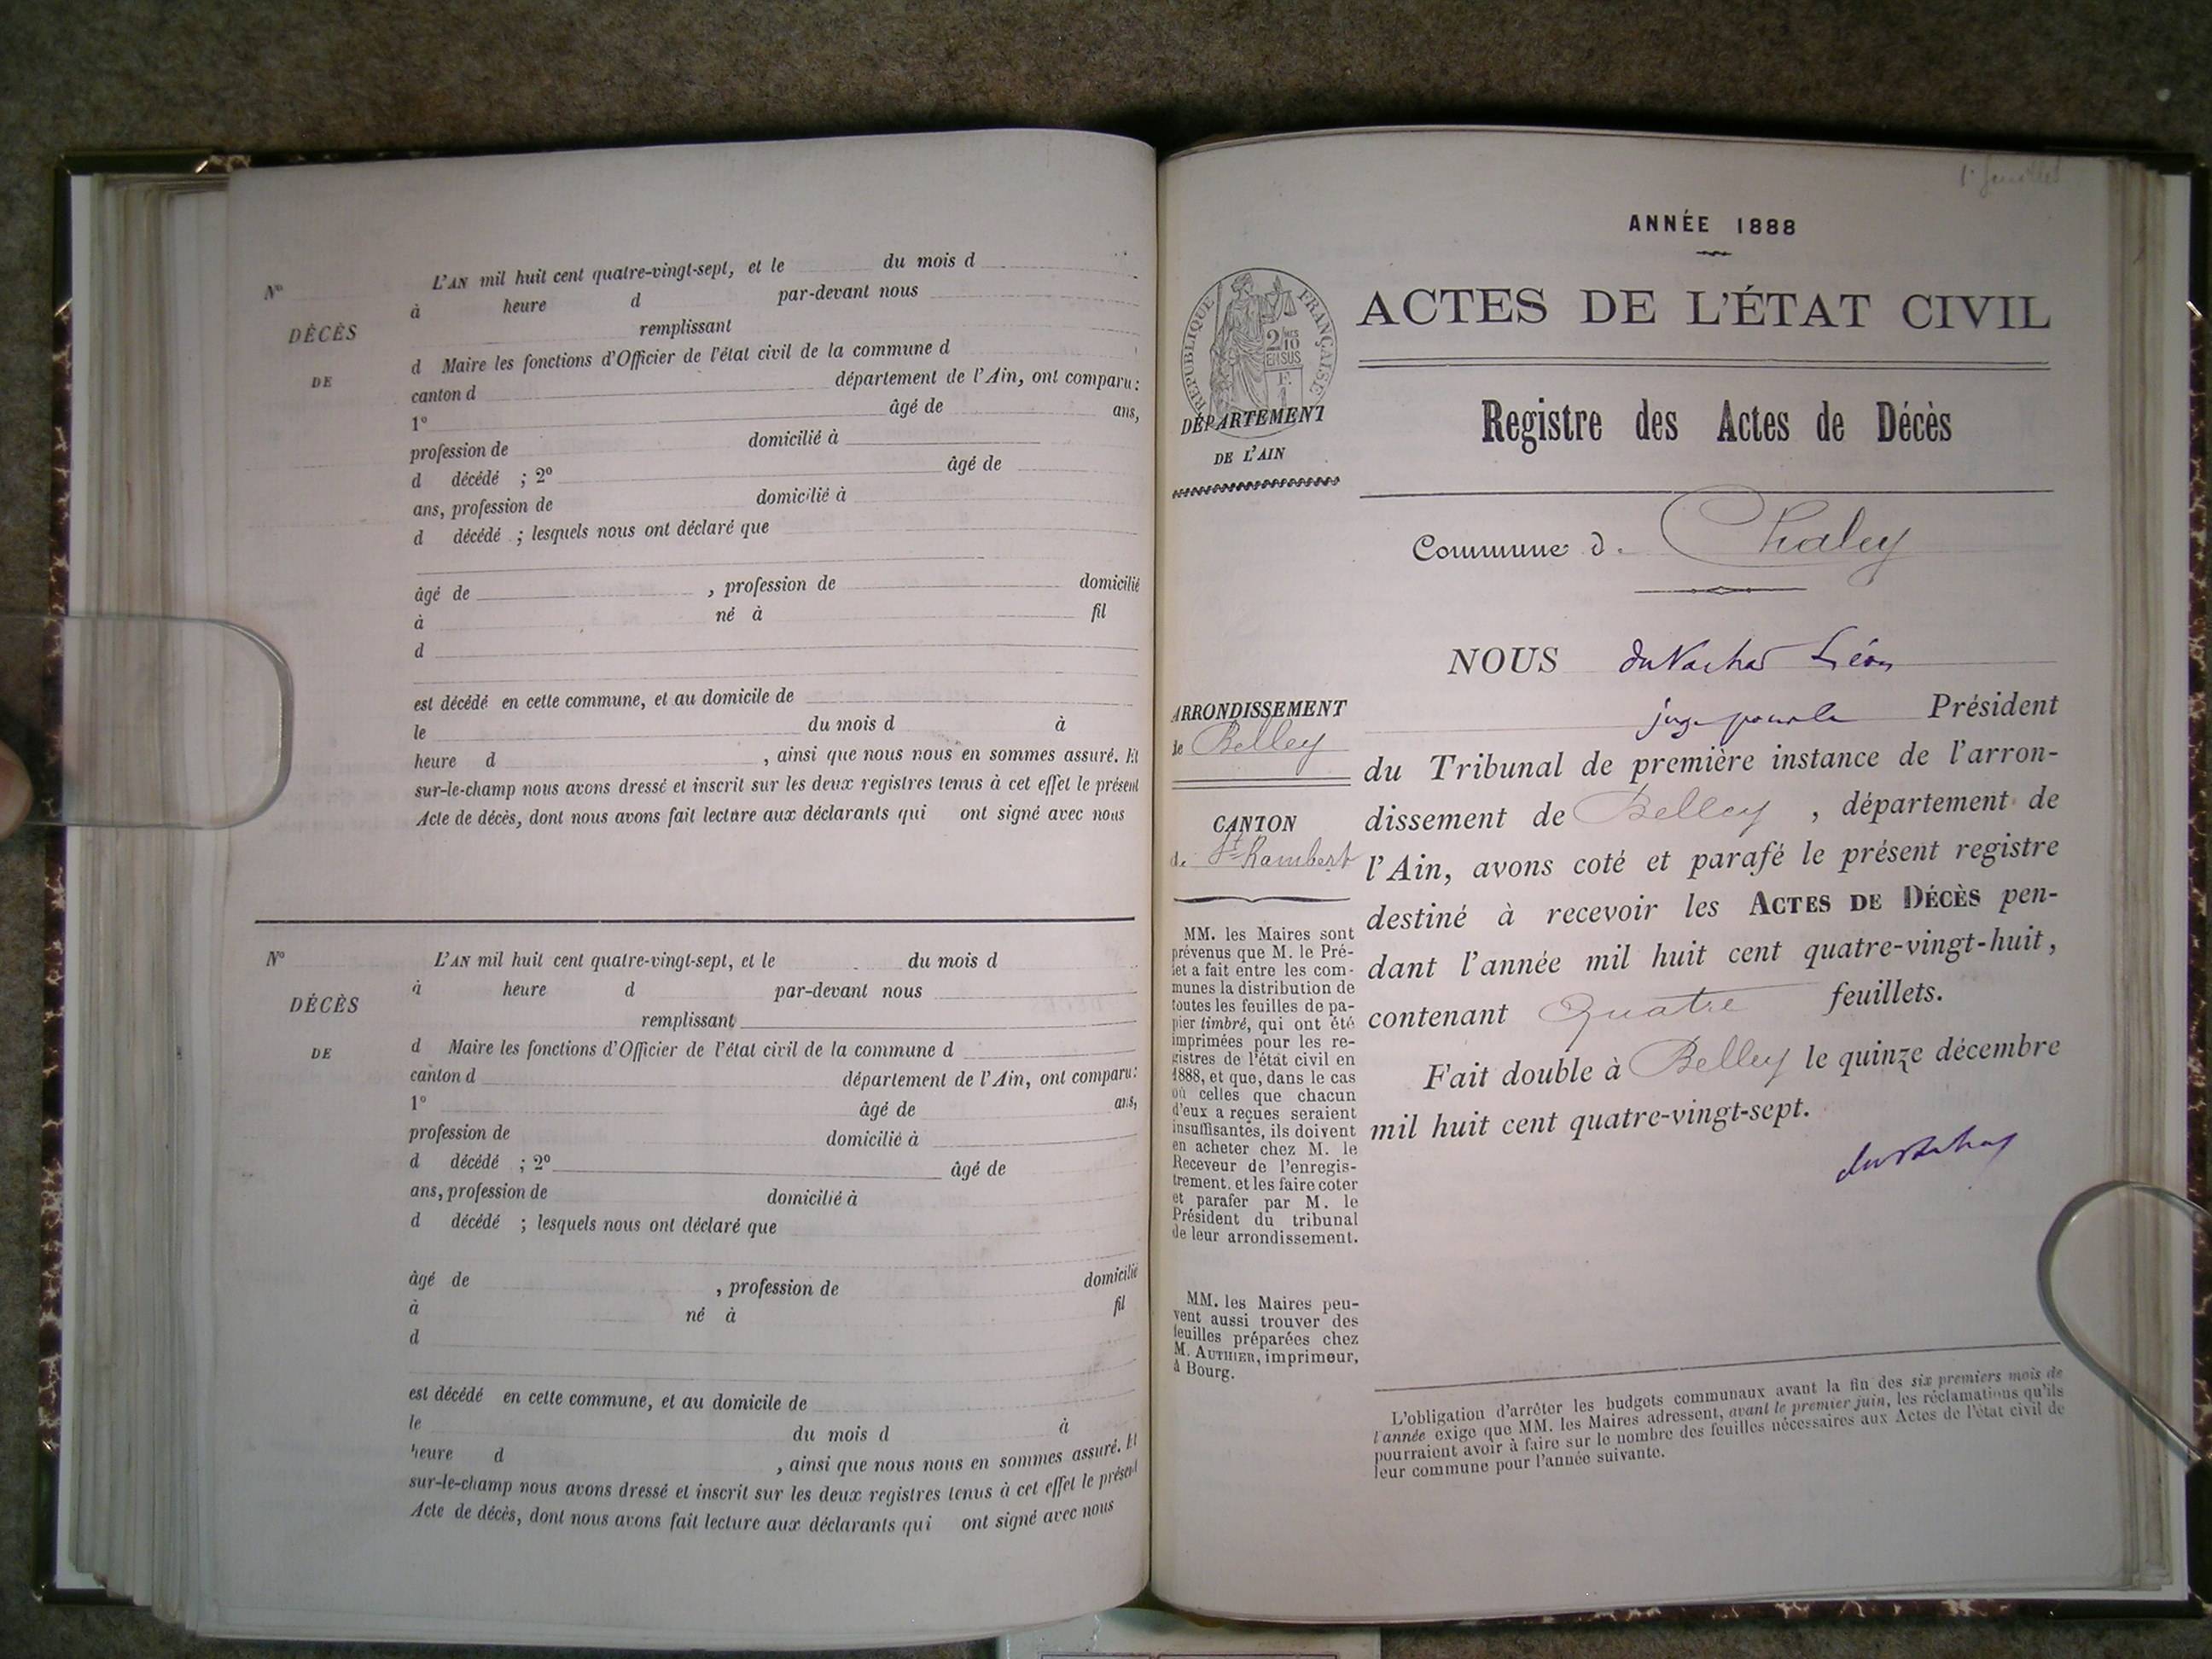 N°
DÉCÈS
DE
L'AN mil huit cent quatre-vingt-sept, et le du mois d
à heure d par-devant nous
remplissant
d Maire les fonctions d'Officier de l'état civil de la commune d
canton d département de l'Ain, ont comparu:
1° âgé de ans,
profession de domicilié à
d décédé ; 2° âgé de
ans, profession de domicilié à
d décédé ; lesquels nous ont déclaré que
âgé de , profession de domicilié
à né à fil
d
est décédé en cette commune, et au domicile de
le du mois d à
heure d , ainsi que nous nous en sommes assuré. Et
sur-le-champ nous avons dressé et inscrit sur les deux registres tenus à cet effet le présent
Acte de décès, dont nous avons fait lecture aux déclarants qui ont signé avec nous
N°
DÉCÈS
DE
L'AN mil huit cent quatre-vingt-sept, et le du mois d
à heure d par-devant nous
remplissant
d Maire les fonctions d'Officier de l'état civil de la commune d
canton d département de l'Ain, ont comparu:
1° âgé de ans,
profession de domicilié à
d décédé ; 2° âgé de
ans, profession de domicilié à
d décédé ; lesquels nous ont déclaré que
âgé de , profession de domicilié
à né à fil
d
est décédé en cette commune, et au domicile de
le du mois d à
heure d , ainsi que nous nous en sommes assuré. Et
sur-le-champ nous avons dressé et inscrit sur les deux registres tenus à cet effet le présent
Acte de décès, dont nous avons fait lecture aux déclarants qui ont signé avec nous
ANNÉE 1888
RÉPUBLIQUE FRANÇAISE
2/10
EN SUS
DÉPARTEMENT
DE L'AIN
ARRONDISSEMENT
de Belley
CANTON
de St Rambert
MM. les Maires sont
prévenus que M. le Pré-
fet a fait entre les com-
munes la distribution de
toutes les feuilles de pa-
pier timbré, qui ont été
imprimées pour les re-
gistres de l'état civil en
1888, et que, dans le cas
où celles que chacun
d'eux a reçues seraient
insuffisantes, ils doivent
en acheter chez M. le
Receveur de l'enregis-
trement. et les faire coter
et parafer par M. le
Président du tribunal
de leur arrondissement.
MM. les Maires peu-
vent aussi trouver des
feuilles préparées chez
M. AUTHIER, imprimeur,
à Bourg.
ACTES DE L'ÉTAT CIVIL
Registre des Actes de Décès
Commune d. Chaley
NOUS Léon
juge pour le Président
du Tribunal de première instance de l'arron-
dissement de Belley , département de
l'Ain, avons coté et parafé le présent registre
destiné à recevoir les ACTES DE DÉCÈS pen-
dant l'année mil huit cent quatre-vingt-huit,
contenant Quatre feuillets.
Fait double à Belley le quinze décembre
mil huit cent quatre-vingt-sept.
L'obligation d'arrêter les budgets communaux avant la fin des six premiers mois de
l'année exige que MM. les Maires adressent, avant le premier juin, les réclamations qu'ils
pourraient avoir à faire sur le nombre des feuilles nécessaires aux Actes de l'état civil de
leur commune pour l'année suivante.